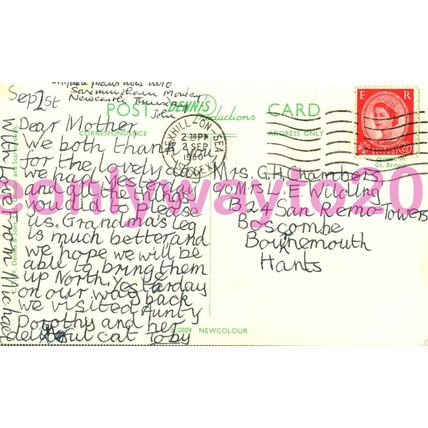 Saxmundham
Newcastle
Sep 1st
POST DENNIS CARD
Productions
CORRESPONDENCE
ADDRESS ONLY
BEXHILL-ON-SEA
2 30 PM
2 SEP
1960
SUSSEX
E R
Gt. Britain
Dear Mother
We both thank
for the lovely day
we had yesterday
and all the things
you did to please
us. Grandma's leg
is much better and
we hope we will be
able to bring them
up North. Yesterday
on our way back
we visited Aunty
Dorothy and her
cat Toby
With Love From Michael
Mrs. G.H. Chambers
c/o Mrs L. Wilding
San Remo Towers
Boscombe
Bournemouth
Hants
NEWCOLOUR
eonlywayto20